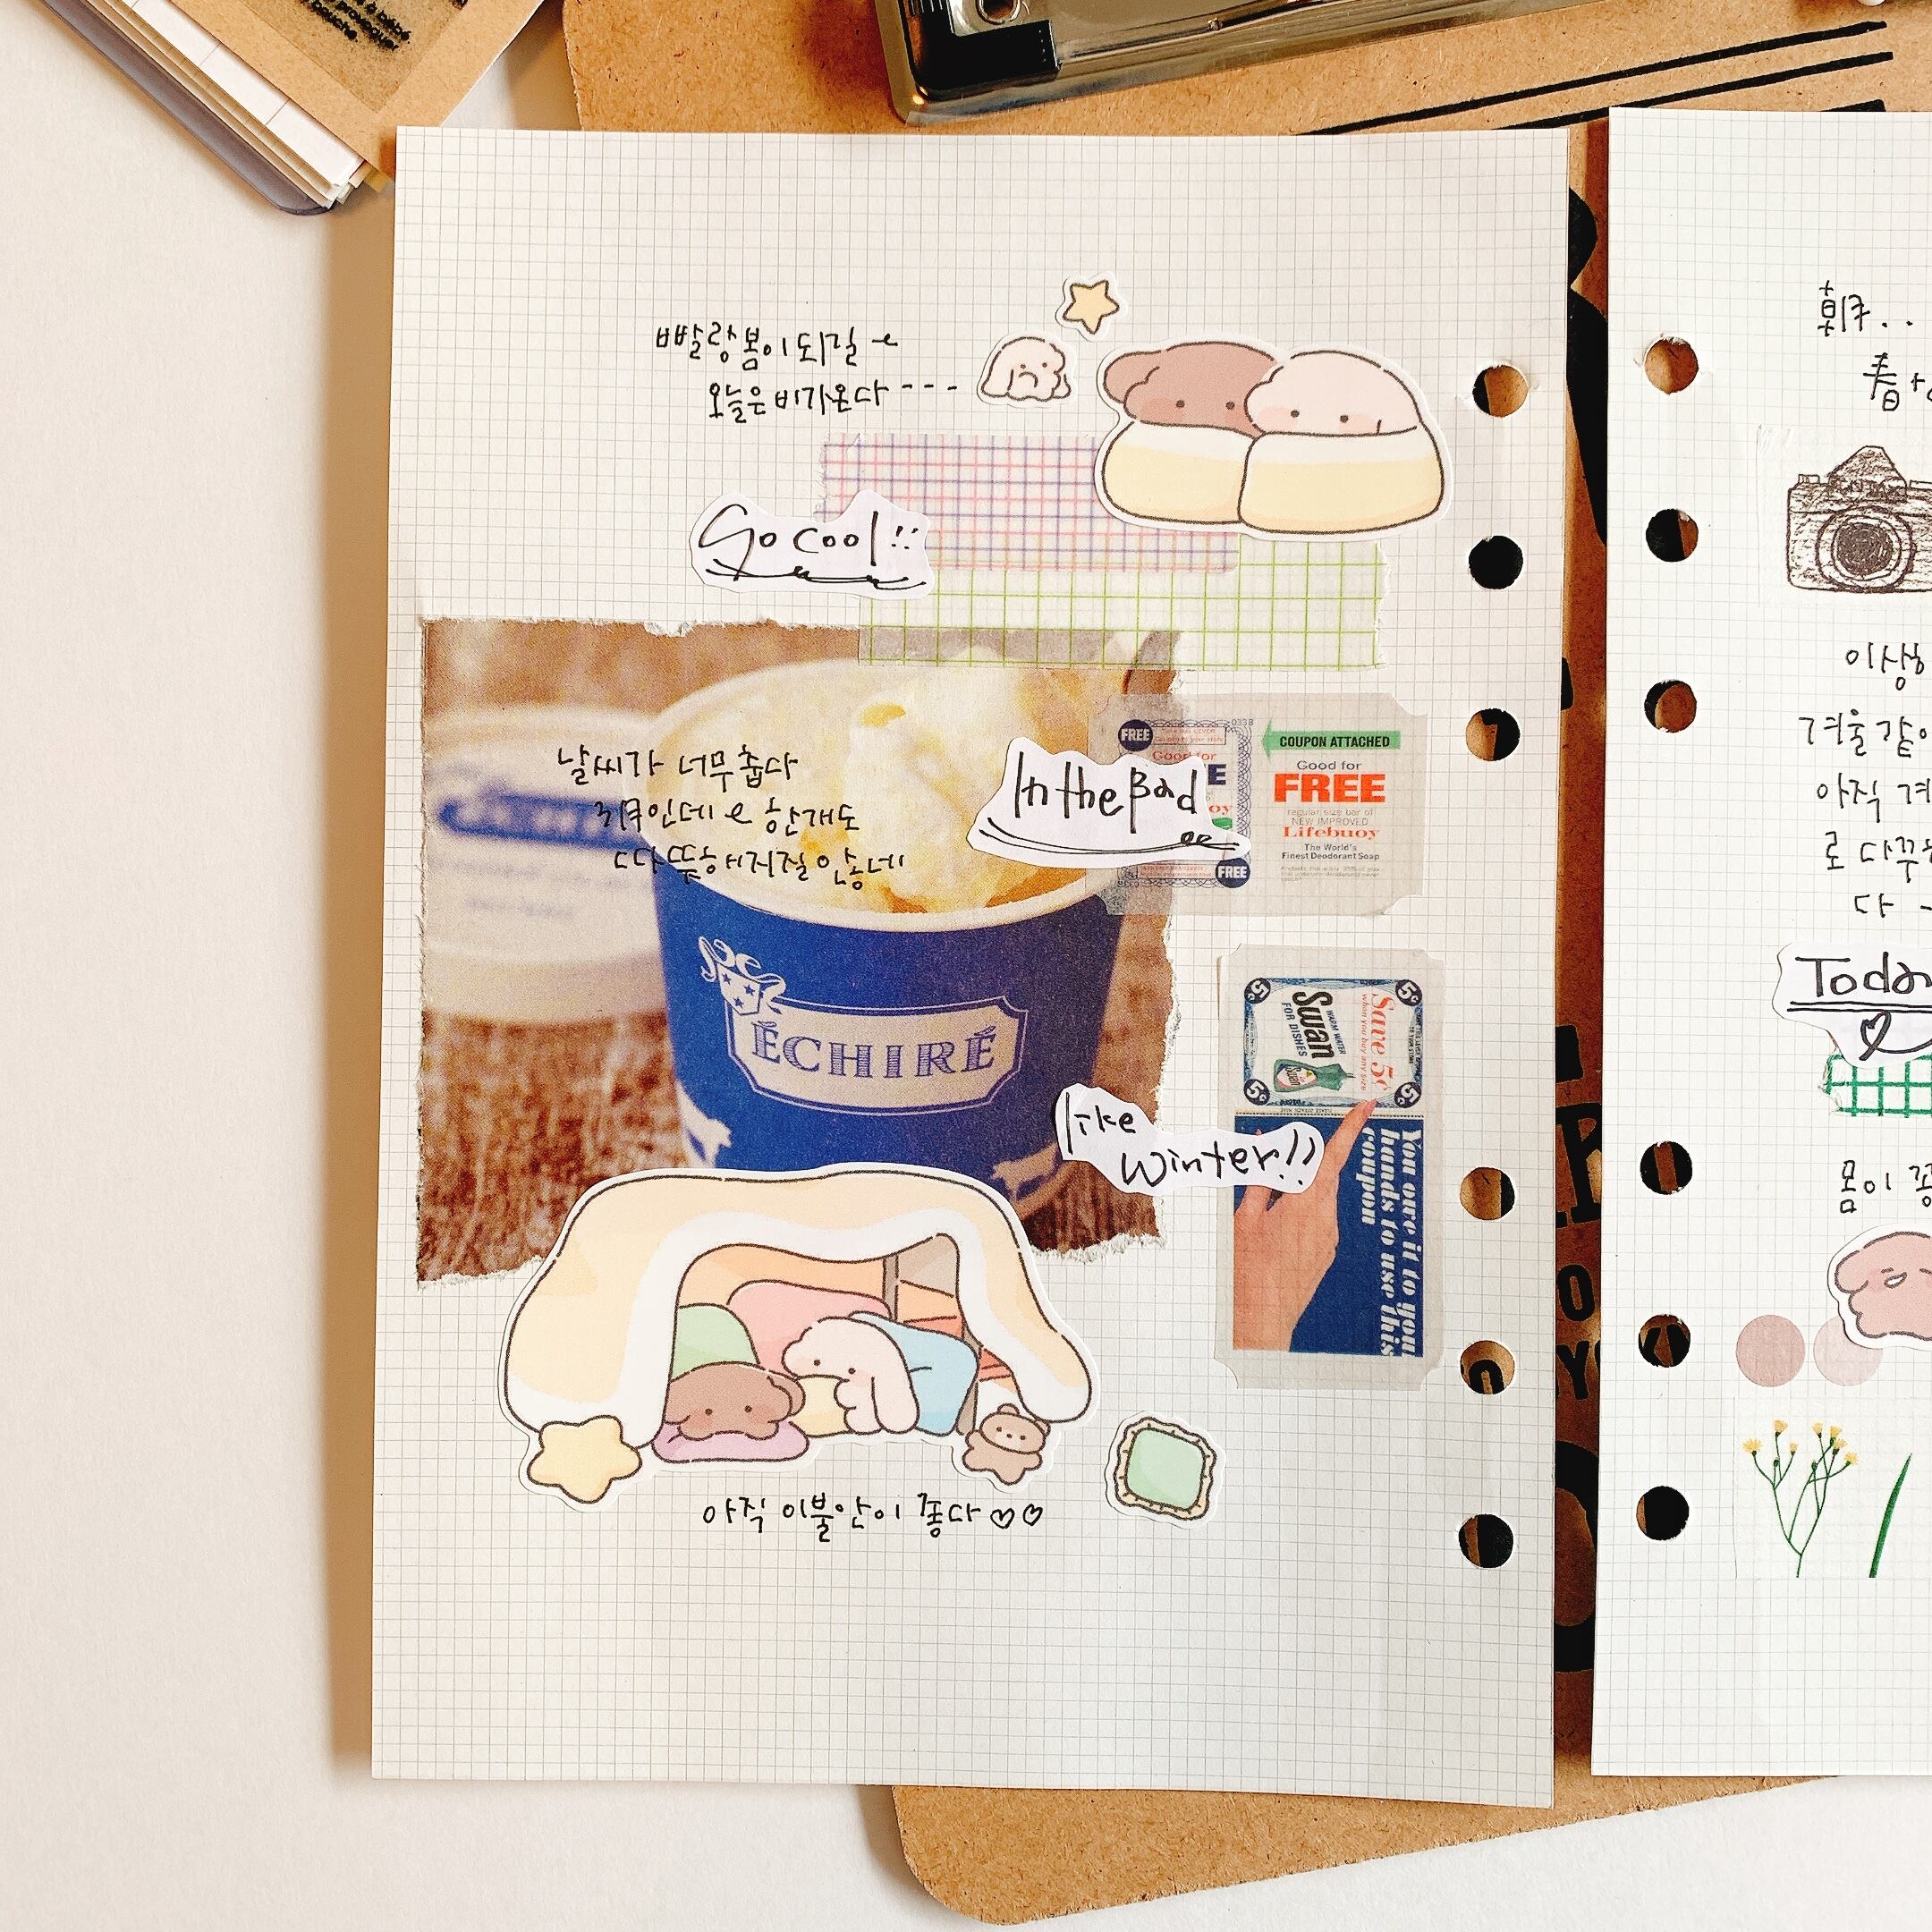 빨랑 봄이 되길~
오늘은 비가 온다---
So cool!!
날씨가 너무 춥다
3月인데 ~ 한개도
따뜻해지질 않네
In the Bad
FREE
0338
Good for
FREE
COUPON ATTACHED
Good for
FREE
regular size bar of
NEW IMPROVED
Lifebuoy
The World's
Finest Deodorant Soap
ÉCHIRÉ
5¢
5¢
5¢
5¢
WARM WATER
Swan
FOR DISHES
Save 5¢
when you buy any size
You owe it to your
hands to use this
coupon
like
Winter!!
아직 이불안이 좋다♡♡
春
이상
겨울같이
아직
로 다꾸
다
Today
몸이